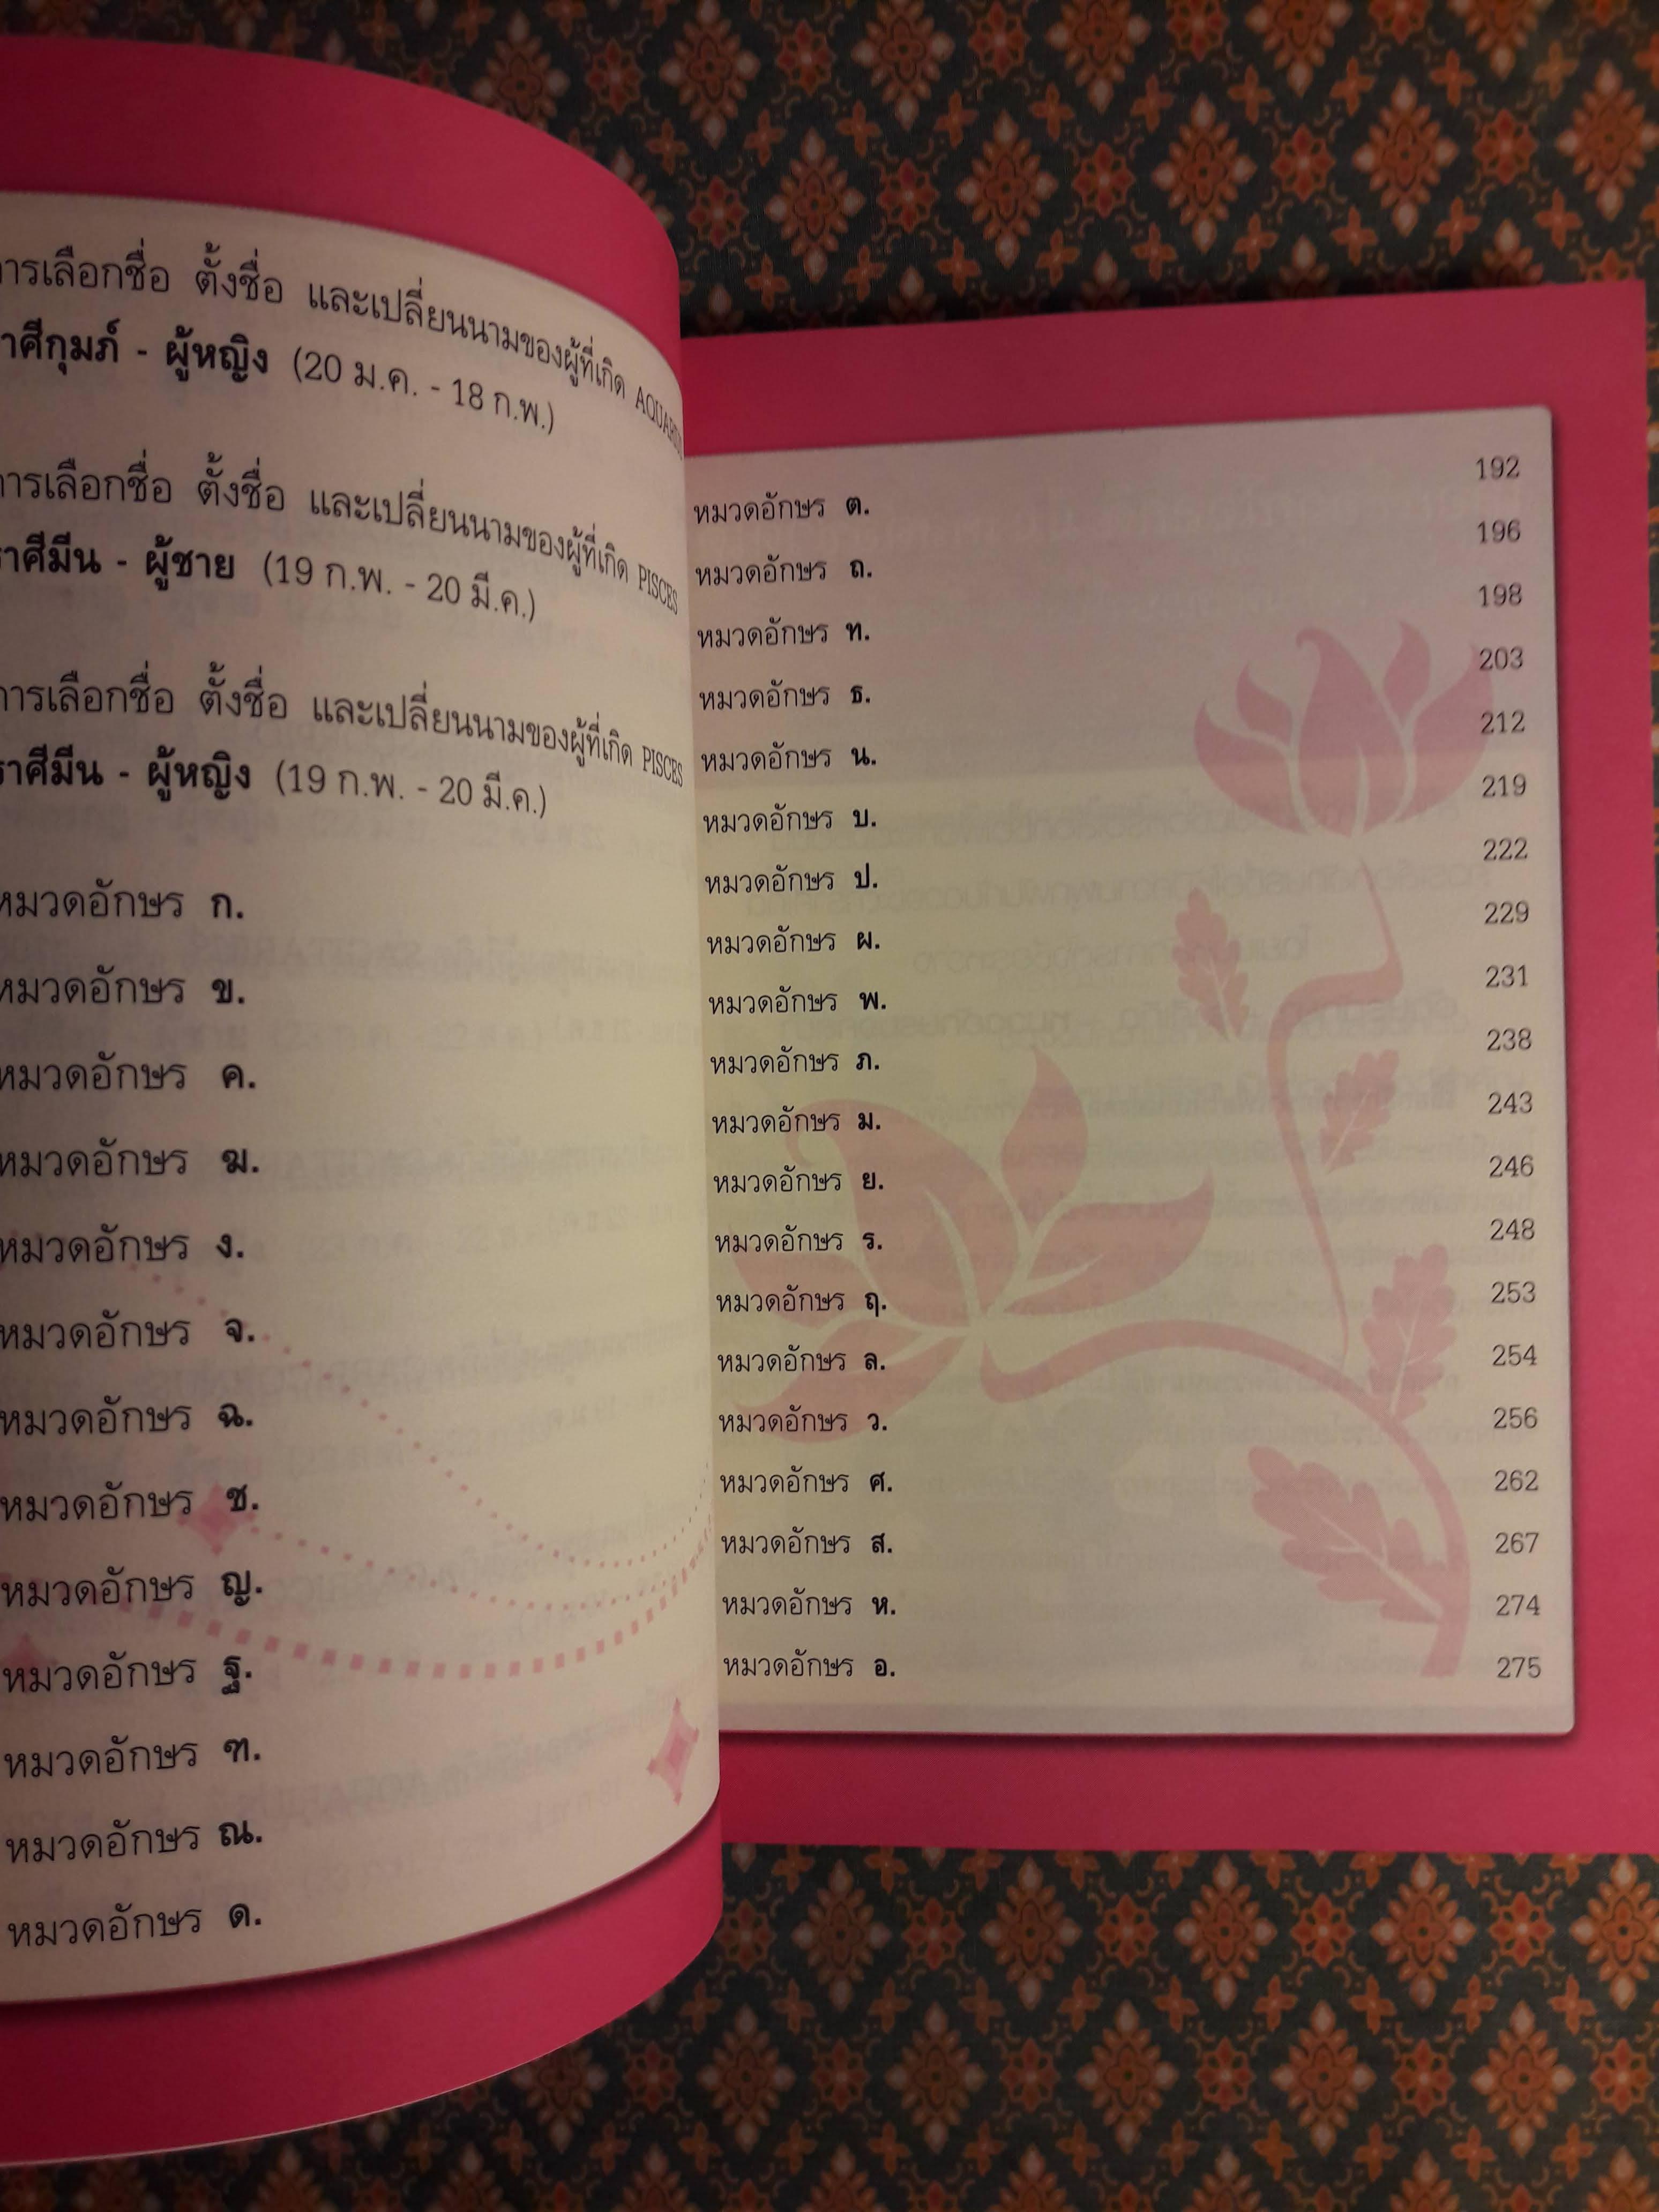 การเลือกชื่อ ตั้งชื่อ และเปลี่ยนนามของผู้ที่เกิด
ราศีกุมภ์ - ผู้หญิง (20 ม.ค. - 18 ก.พ.)
การเลือกชื่อ ตั้งชื่อ และเปลี่ยนนามของผู้ที่เกิด PISCES
ราศีมีน - ผู้ชาย (19 ก.พ. - 20 มี.ค.)
การเลือกชื่อ ตั้งชื่อ และเปลี่ยนนามของผู้ที่เกิด PISCES
ราศีมีน - ผู้หญิง (19 ก.พ. - 20 มี.ค.)
หมวดอักษร ก.
หมวดอักษร ข.
หมวดอักษร ค.
หมวดอักษร ฆ.
หมวดอักษร ง.
หมวดอักษร จ.
หมวดอักษร ฉ.
หมวดอักษร ช.
หมวดอักษร ญ.
หมวดอักษร ฐ.
หมวดอักษร ฑ.
หมวดอักษร ณ.
หมวดอักษร ด.
หมวดอักษร ต. 192
หมวดอักษร ถ. 196
หมวดอักษร ท. 198
หมวดอักษร ธ. 203
หมวดอักษร น. 212
หมวดอักษร บ. 219
หมวดอักษร ป. 222
หมวดอักษร ผ. 229
หมวดอักษร พ. 231
หมวดอักษร ภ. 238
หมวดอักษร ม. 243
หมวดอักษร ย. 246
หมวดอักษร ร. 248
หมวดอักษร ฤ. 253
หมวดอักษร ล. 254
หมวดอักษร ว. 256
หมวดอักษร ศ. 262
หมวดอักษร ส. 267
หมวดอักษร ห. 274
หมวดอักษร อ. 275